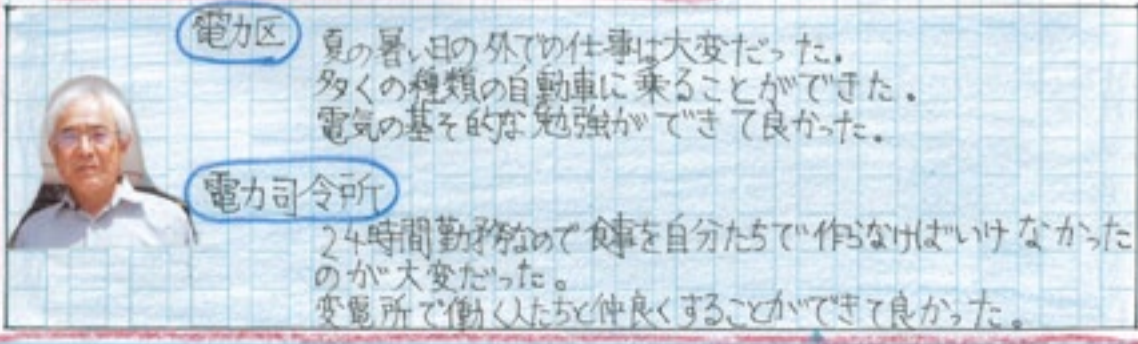 電力区
夏の暑い日の外での仕事は大変だった。
多くの種類の自動車に乗ることができた。
電気の基そ的な勉強ができて良かった。
電力司令所
24時間勤務なので食事を自分たちで作らなければいけなかった
のが大変だった。
変電所で働く人たちと仲良くすることができて良かった。